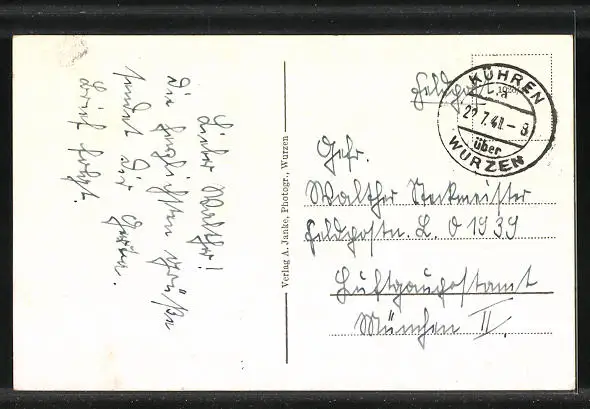 Lieber Walther!
Die herzlichsten Grüße
sendet Dir
Brief folgt.
Verlag A. Janke, Photogr., Wurzen
Feldpost
KÜHREN
a
22.7.41.-8
über
WURZEN
Gefr.
Walther Neckmeister
Feldpostn. L. 01939
Luftgaupostamt
München II.